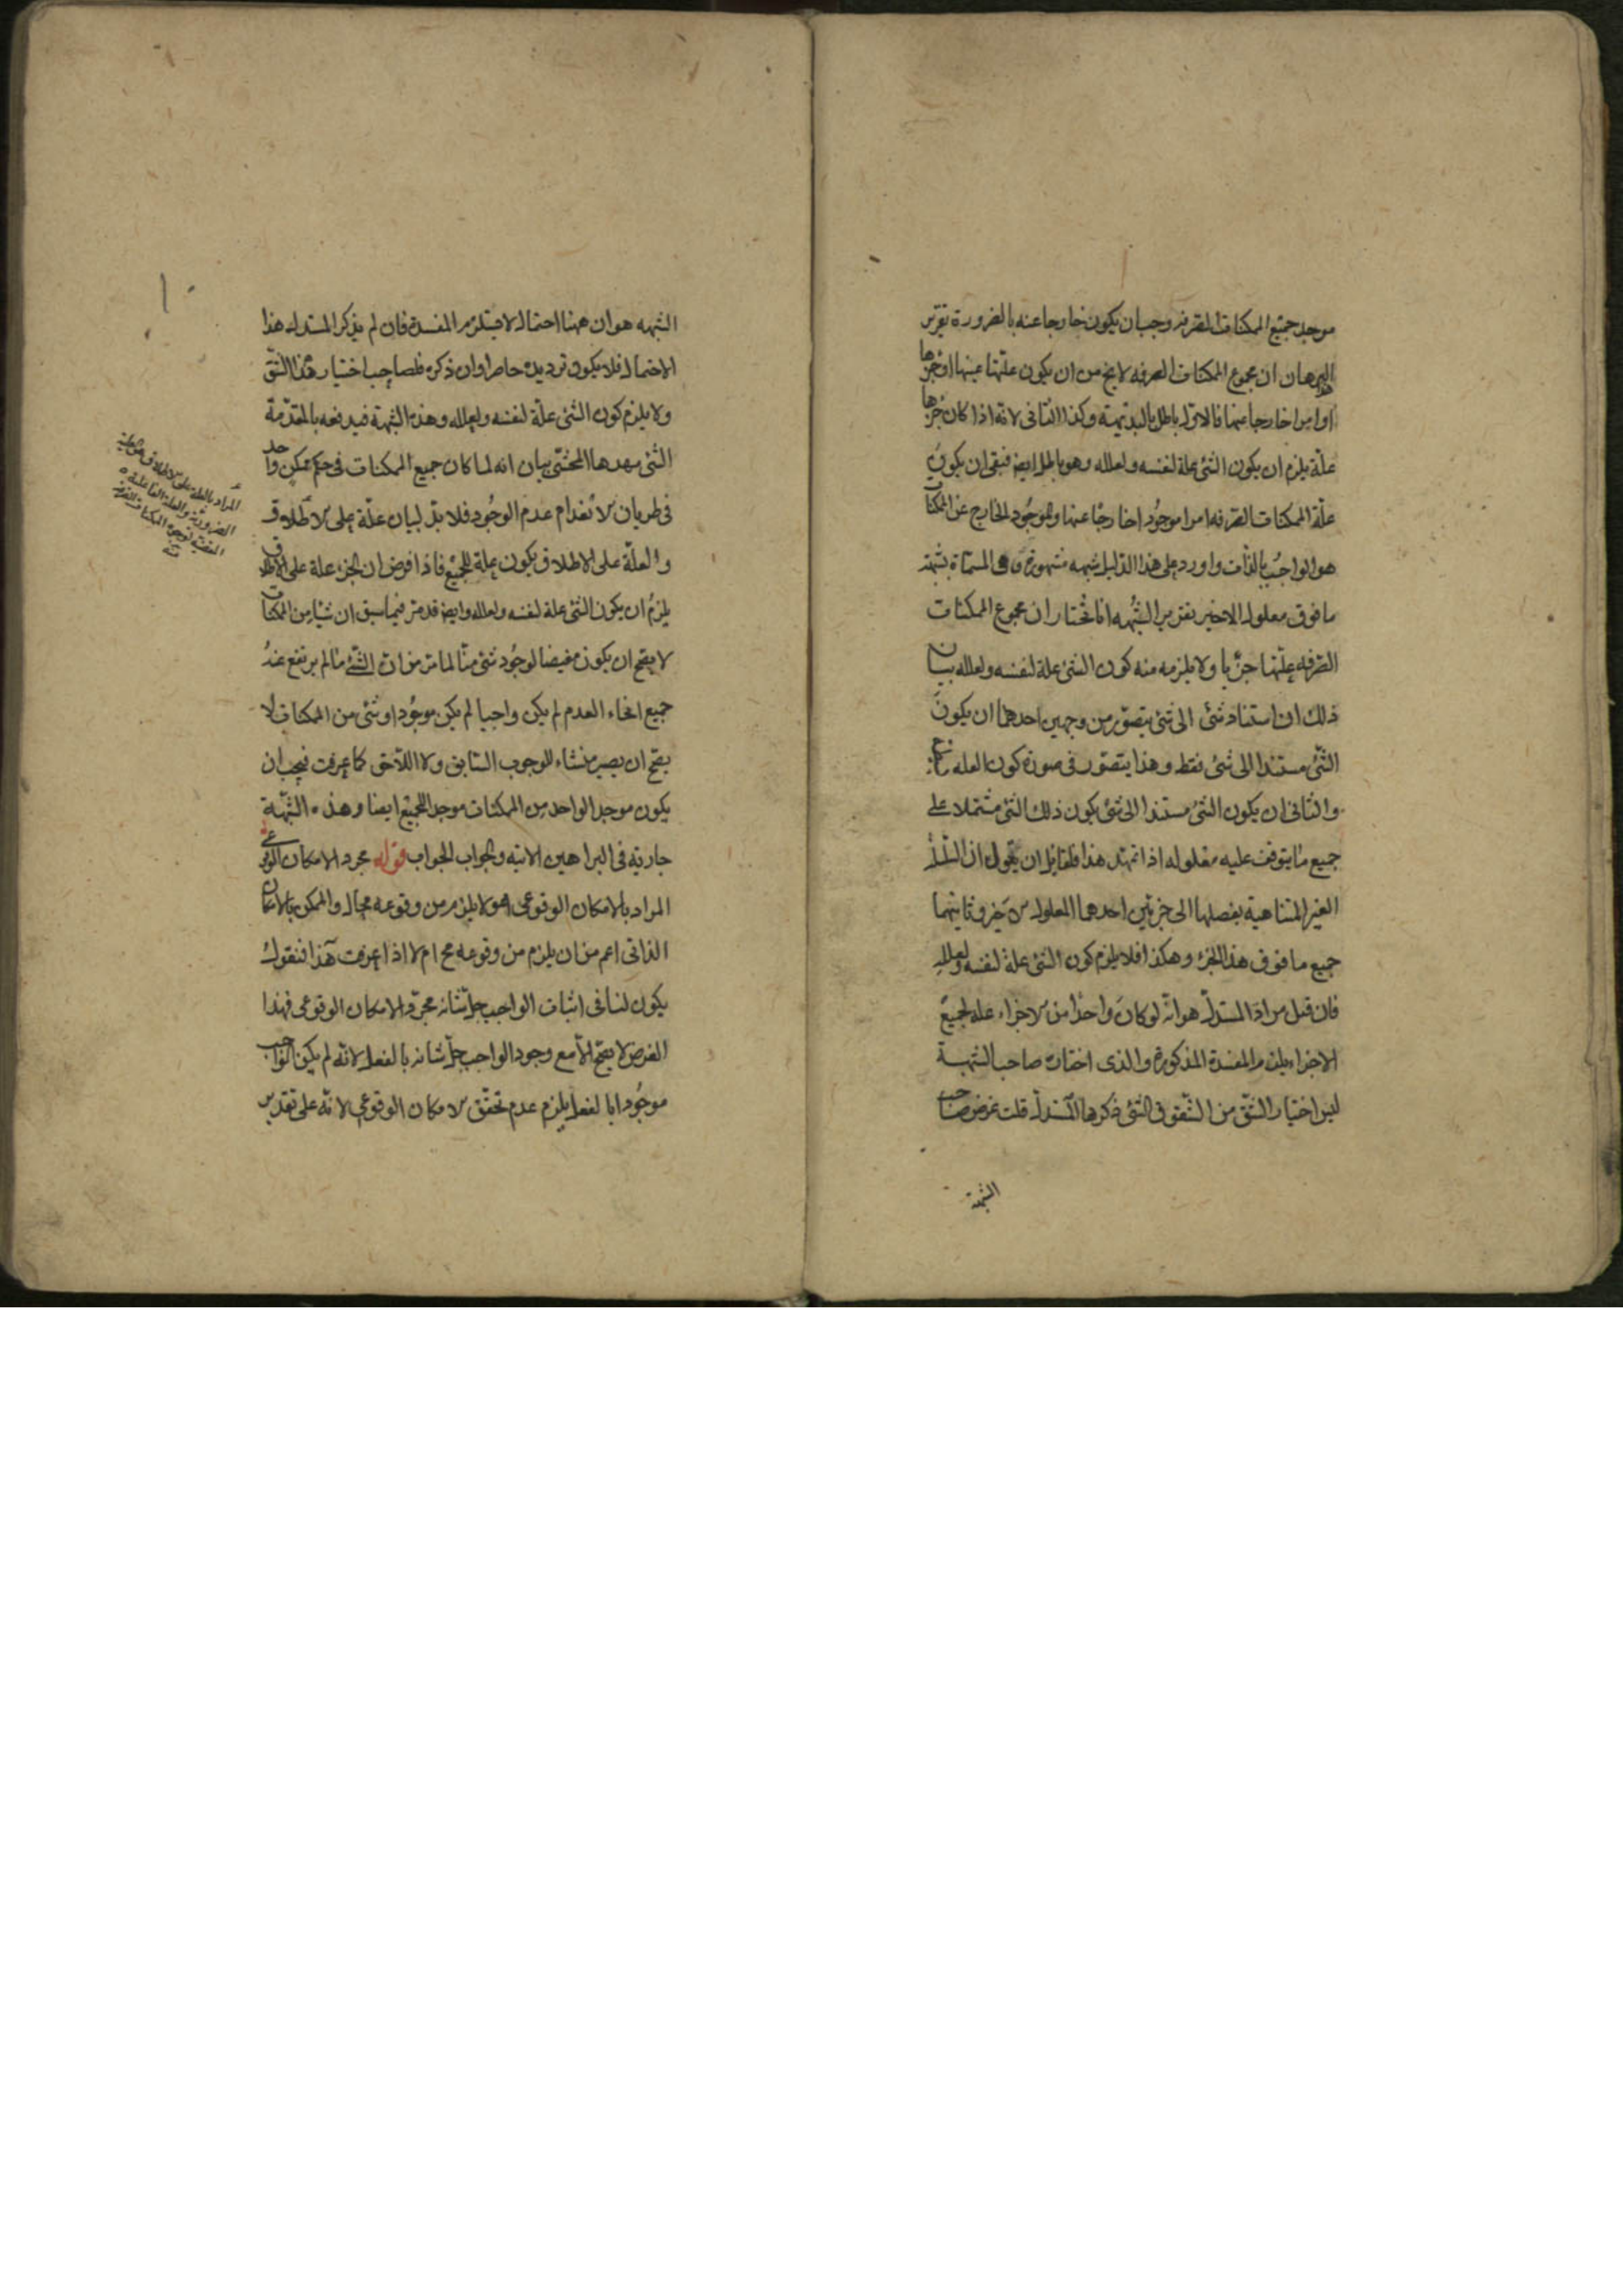 موجد جميع الممكنات الصرفه وجب ان يكون خارجا عنه بالضرورة تقرير
البرهان ان مجموع الممكنات الصرفه لا يخ من ان يكون علتها عينها او جزءها
او امرا خارجا عنها فالاول باطل بالبديهية وكذا الثانى لانه اذا كان جزءها
علة يلزم ان يكون الشئ علة لنفسه ولعلله وهو باطل ايض فبقى ان يكون
علة الممكنات الصرفه امرا موجودا خارجا عنها والموجود الخارج عن الممكنات
هو الواجب بالذات واورد على هذا الدليل شبهه مشهورة وهى المسماة بشبهة
ما فوق معلول الاخير تقرير الشبهه انا نختار ان مجموع الممكنات
الصرفه علتها جزءها ولا يلزمه منه كون الشئ علة لنفسه ولعلله بيان
ذلك ان استناد شئ الى شئ يتصور من وجهين احدهما ان يكون
الشئ مستندا الى شئ فقط وهذا يتصور فى صورة كون العله
والثانى ان يكون الشئ مستندا الى شئ يكون ذلك الشئ مشتملا على
جميع ما يتوقف عليه معلوله اذا تمهد هذا فلقايل ان يقول ان السلسلة
الغير المتناهية بفصلها الى جزئين احدهما المعلول الاخير وثانيهما
جميع ما فوق هذا الجزء وهكذا فلا يلزم كون الشئ علة لنفسه ولعلله
فان قيل مراد المستدل هو انه لو كان واحدا من الاجزاء علة لجميع
الاجزاء يلزم المفسدة المذكورة والذى اختاره صاحب الشبهة
ليس اختيار الشق من الشقوق التى ذكرها المستدل قلت غرض صاحب
الشبهة
الشبهه هو ان ههنا احتمال لا يستلزم المفسدة فان لم يذكر المستدل هذا
الاحتمال فلا يكون ترديده حاصرا وان ذكره فلصاحب اختيار هذا الشق
ولا يلزم كون الشئ علة لنفسه ولعلله وهذه الشبهة فيدفعه بالمقدمة
التى مهدها المحشى بيان انه لما كان جميع الممكنات فى حكم ممكن واحد
فى طريان الانعدام عدم الوجود فلا بد لبيان علة على الاطلاق
والعلة على الاطلاق يكون علة للجميع فاذا فرض ان الجزء علة على الاطلاق
يلزم ان يكون الشئ علة لنفسه ولعلله وايض قد مر فيما سبق ان شيئا من الممكنات
لا يصح ان يكون مفيضا لوجود شئ منا لما مر من ان الشئ ما لم يرتفع عنه
جميع انحاء العدم لم يكن واجبا لم يكن موجودا وشئ من الممكنات لا
يصح ان يصير منشاء للوجوب السابق ولا اللاحق كما عرفت فيجب ان
يكون موجد الواحد من الممكنات موجد للجميع ايضا وهذه الشبهة
جارية فى البراهين الاتيه والجواب الجواب قوله مجرد الامكان الوقوعى
المراد بالامكان الوقوعى هو لا يلزم من وقوعه محال والممكن بالامكان
الذاتى اعم من ان يلزم من وقوعه مح ام لا اذا عرفت هذا فنقول
يكون لنا فى اثبات الواجب جل شانه مجرد الامكان الوقوعى فهذا
الفرض لا يصح الا مع وجود الواجب جل شانه بالفعل لانه لم يكن الواجب
موجودا بالفعل يلزم عدم تحقق الامكان الوقوعى لانه على تقدير
المراد بالعلة على الاطلاق هو العلة
الضرورية والعلة الفاعلة